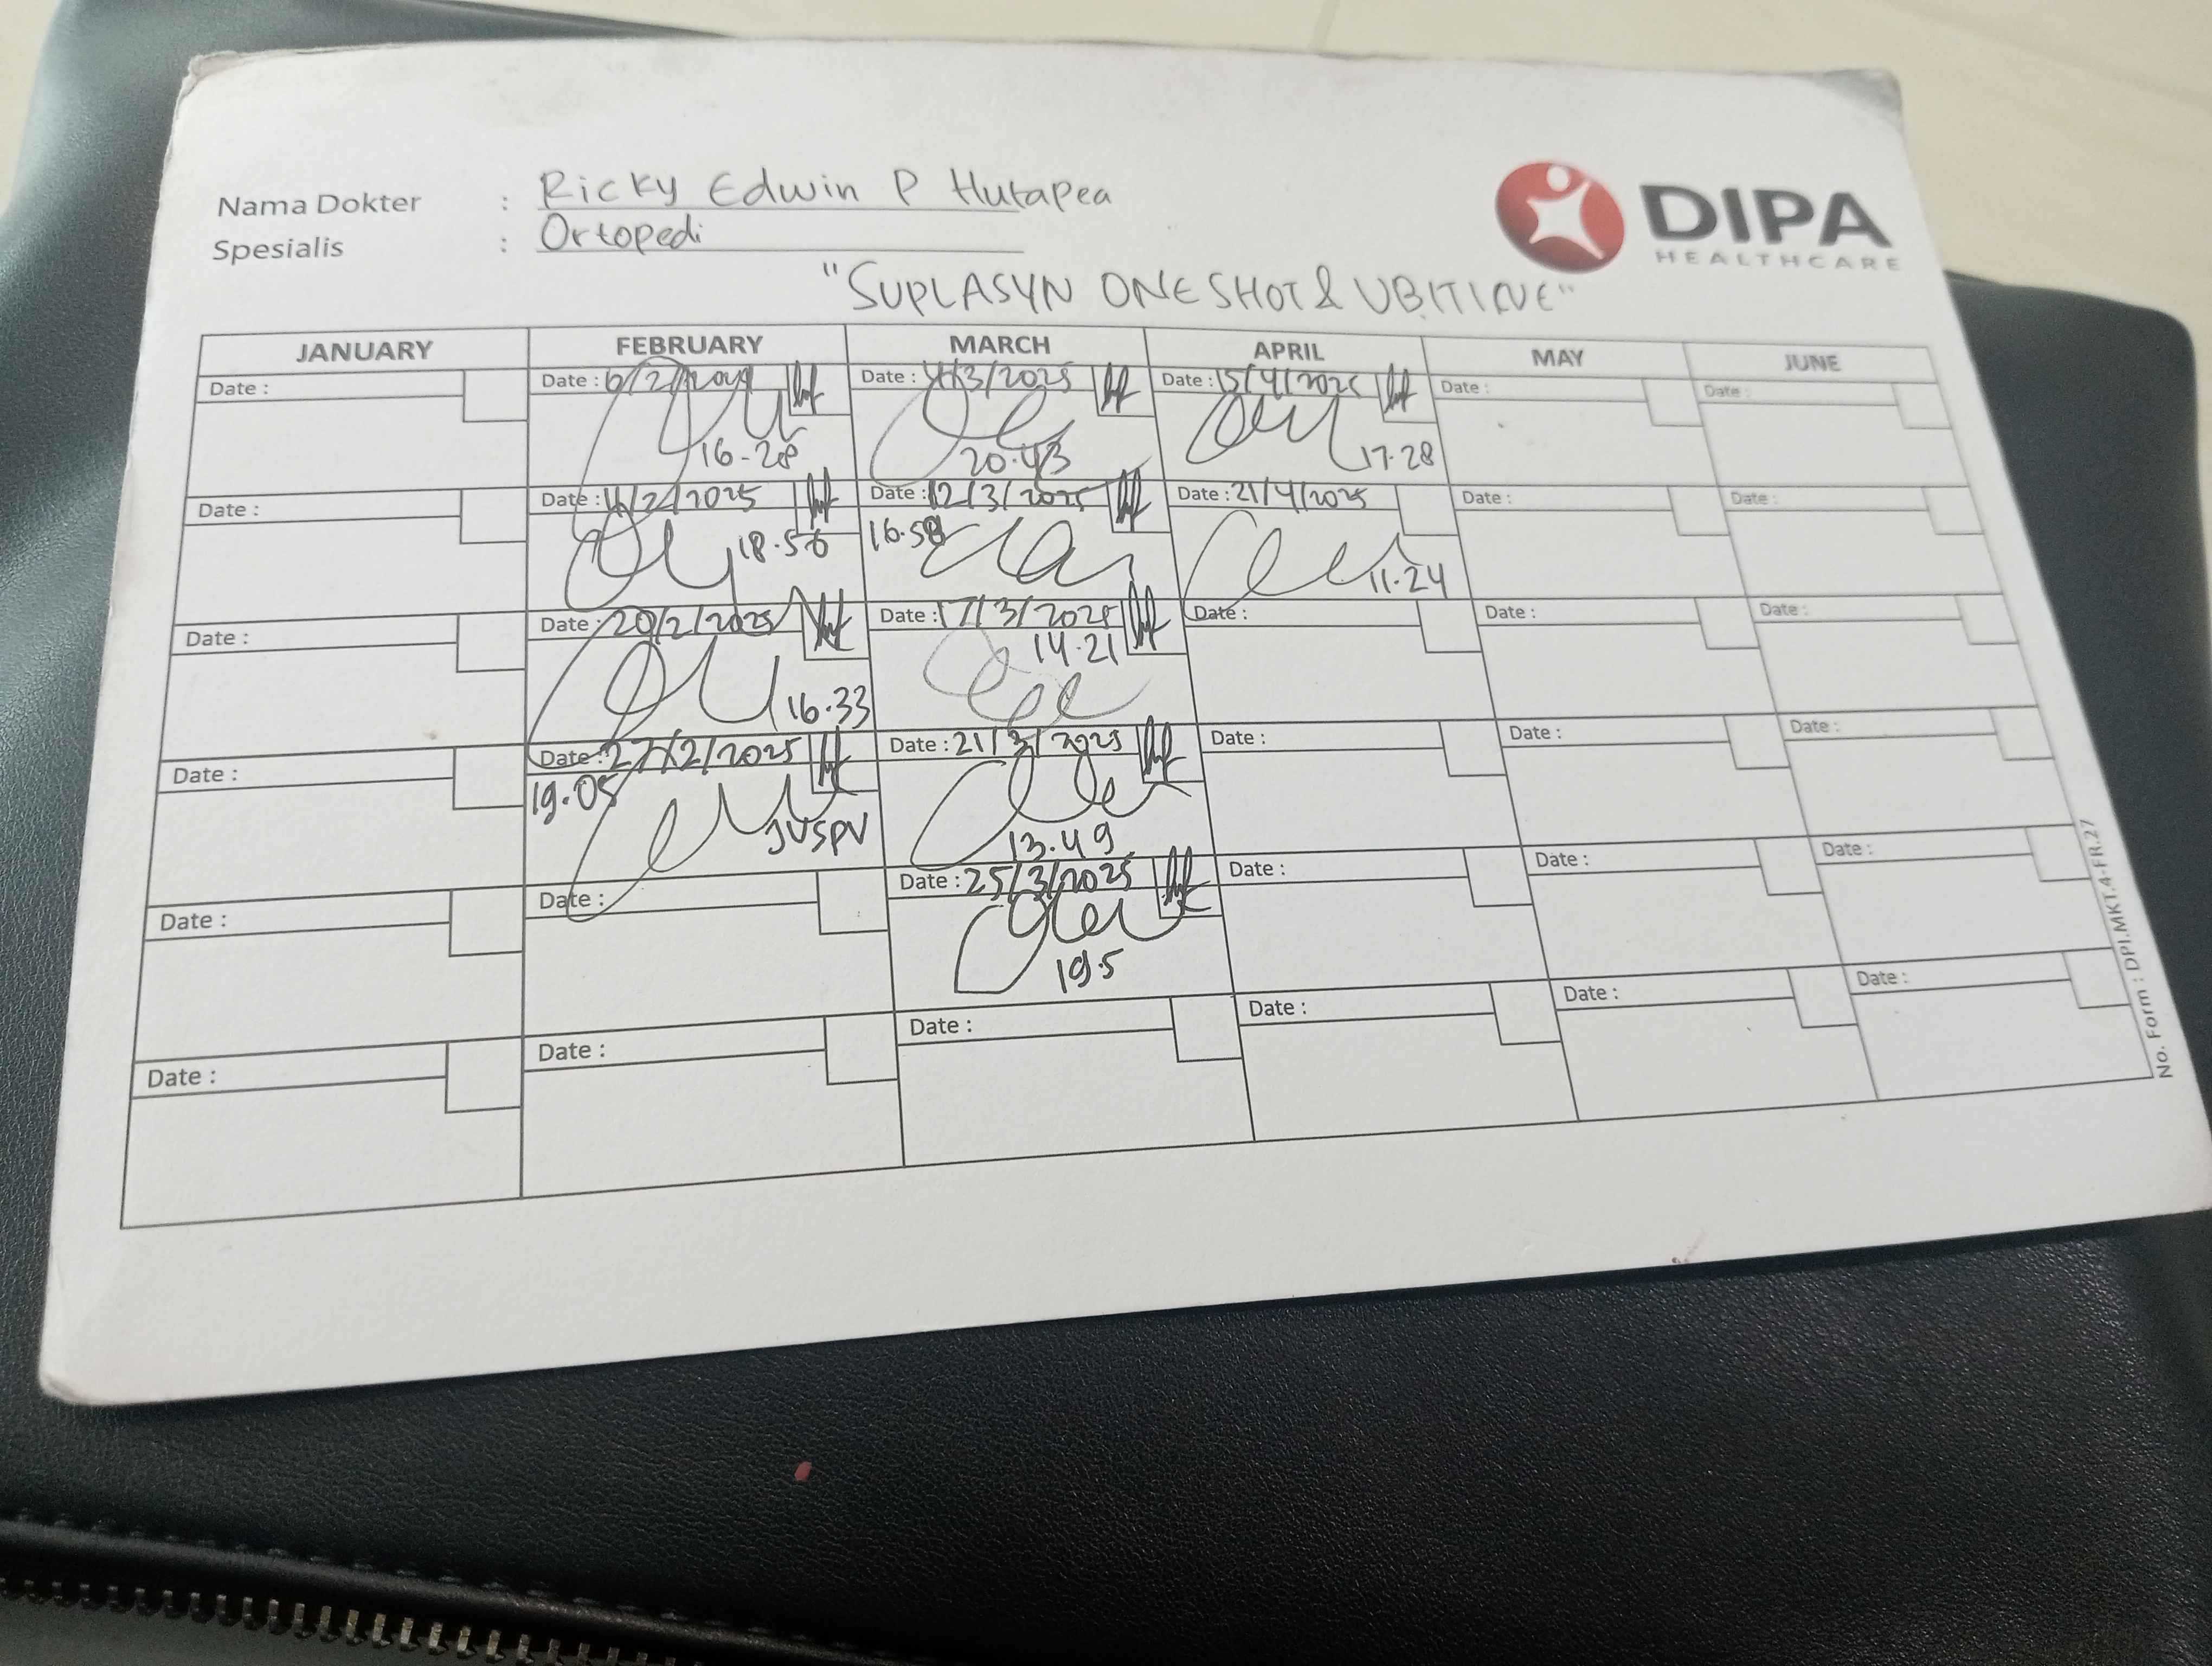 Nama Dokter : Ricky Edwin P Hutapea
Spesialis : Ortopedi
DIPA
HEALTHCARE
"SUPLASYN ONE SHOT & UBITINE"
JANUARY FEBRUARY MARCH APRIL MAY JUNE
Date : Date : 6/2/ Date : 4/3/2025 Date : 15/4/2025 Date : Date :
16-28 20.43 17.28
Date : Date : /2/2025 Date : 12/3/2025 Date : 21/4/2025 Date : Date :
18.56 16.58 11.24
Date : Date : 20/2/2025 Date : 17/3/2025 Date : Date : Date :
16.33 14.21
Date : Date : 27/2/2025 Date : 21/3/2025 Date : Date : Date :
19.05 JVSPV 13.49
Date : Date : Date : 25/3/2025 Date : Date : Date :
19.5
Date : Date : Date : Date : Date : Date :
No. Form : DPI.MKT.4-FR.27